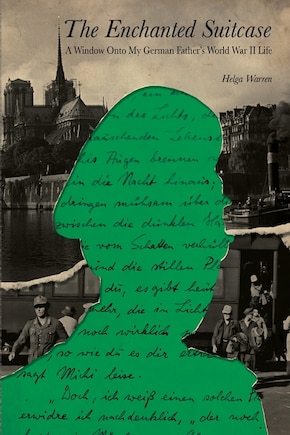 The Enchanted Suitcase
A Window Onto My German Father's World War II Life
Helga Warren
ein
des Lichts, de
Lebens
Augen brennen
in die Nacht hinaus,
dringen mühsam über d
zwischen die dunklen
vom Schatten verhüll
und die stillen
du, es gibt
mehr, die im Licht
noch wirklich
so wie du es dir
sagt Michi leise.
„Doch, ich weiß einen solchen
erwidre ich nachdenklich, „der noch